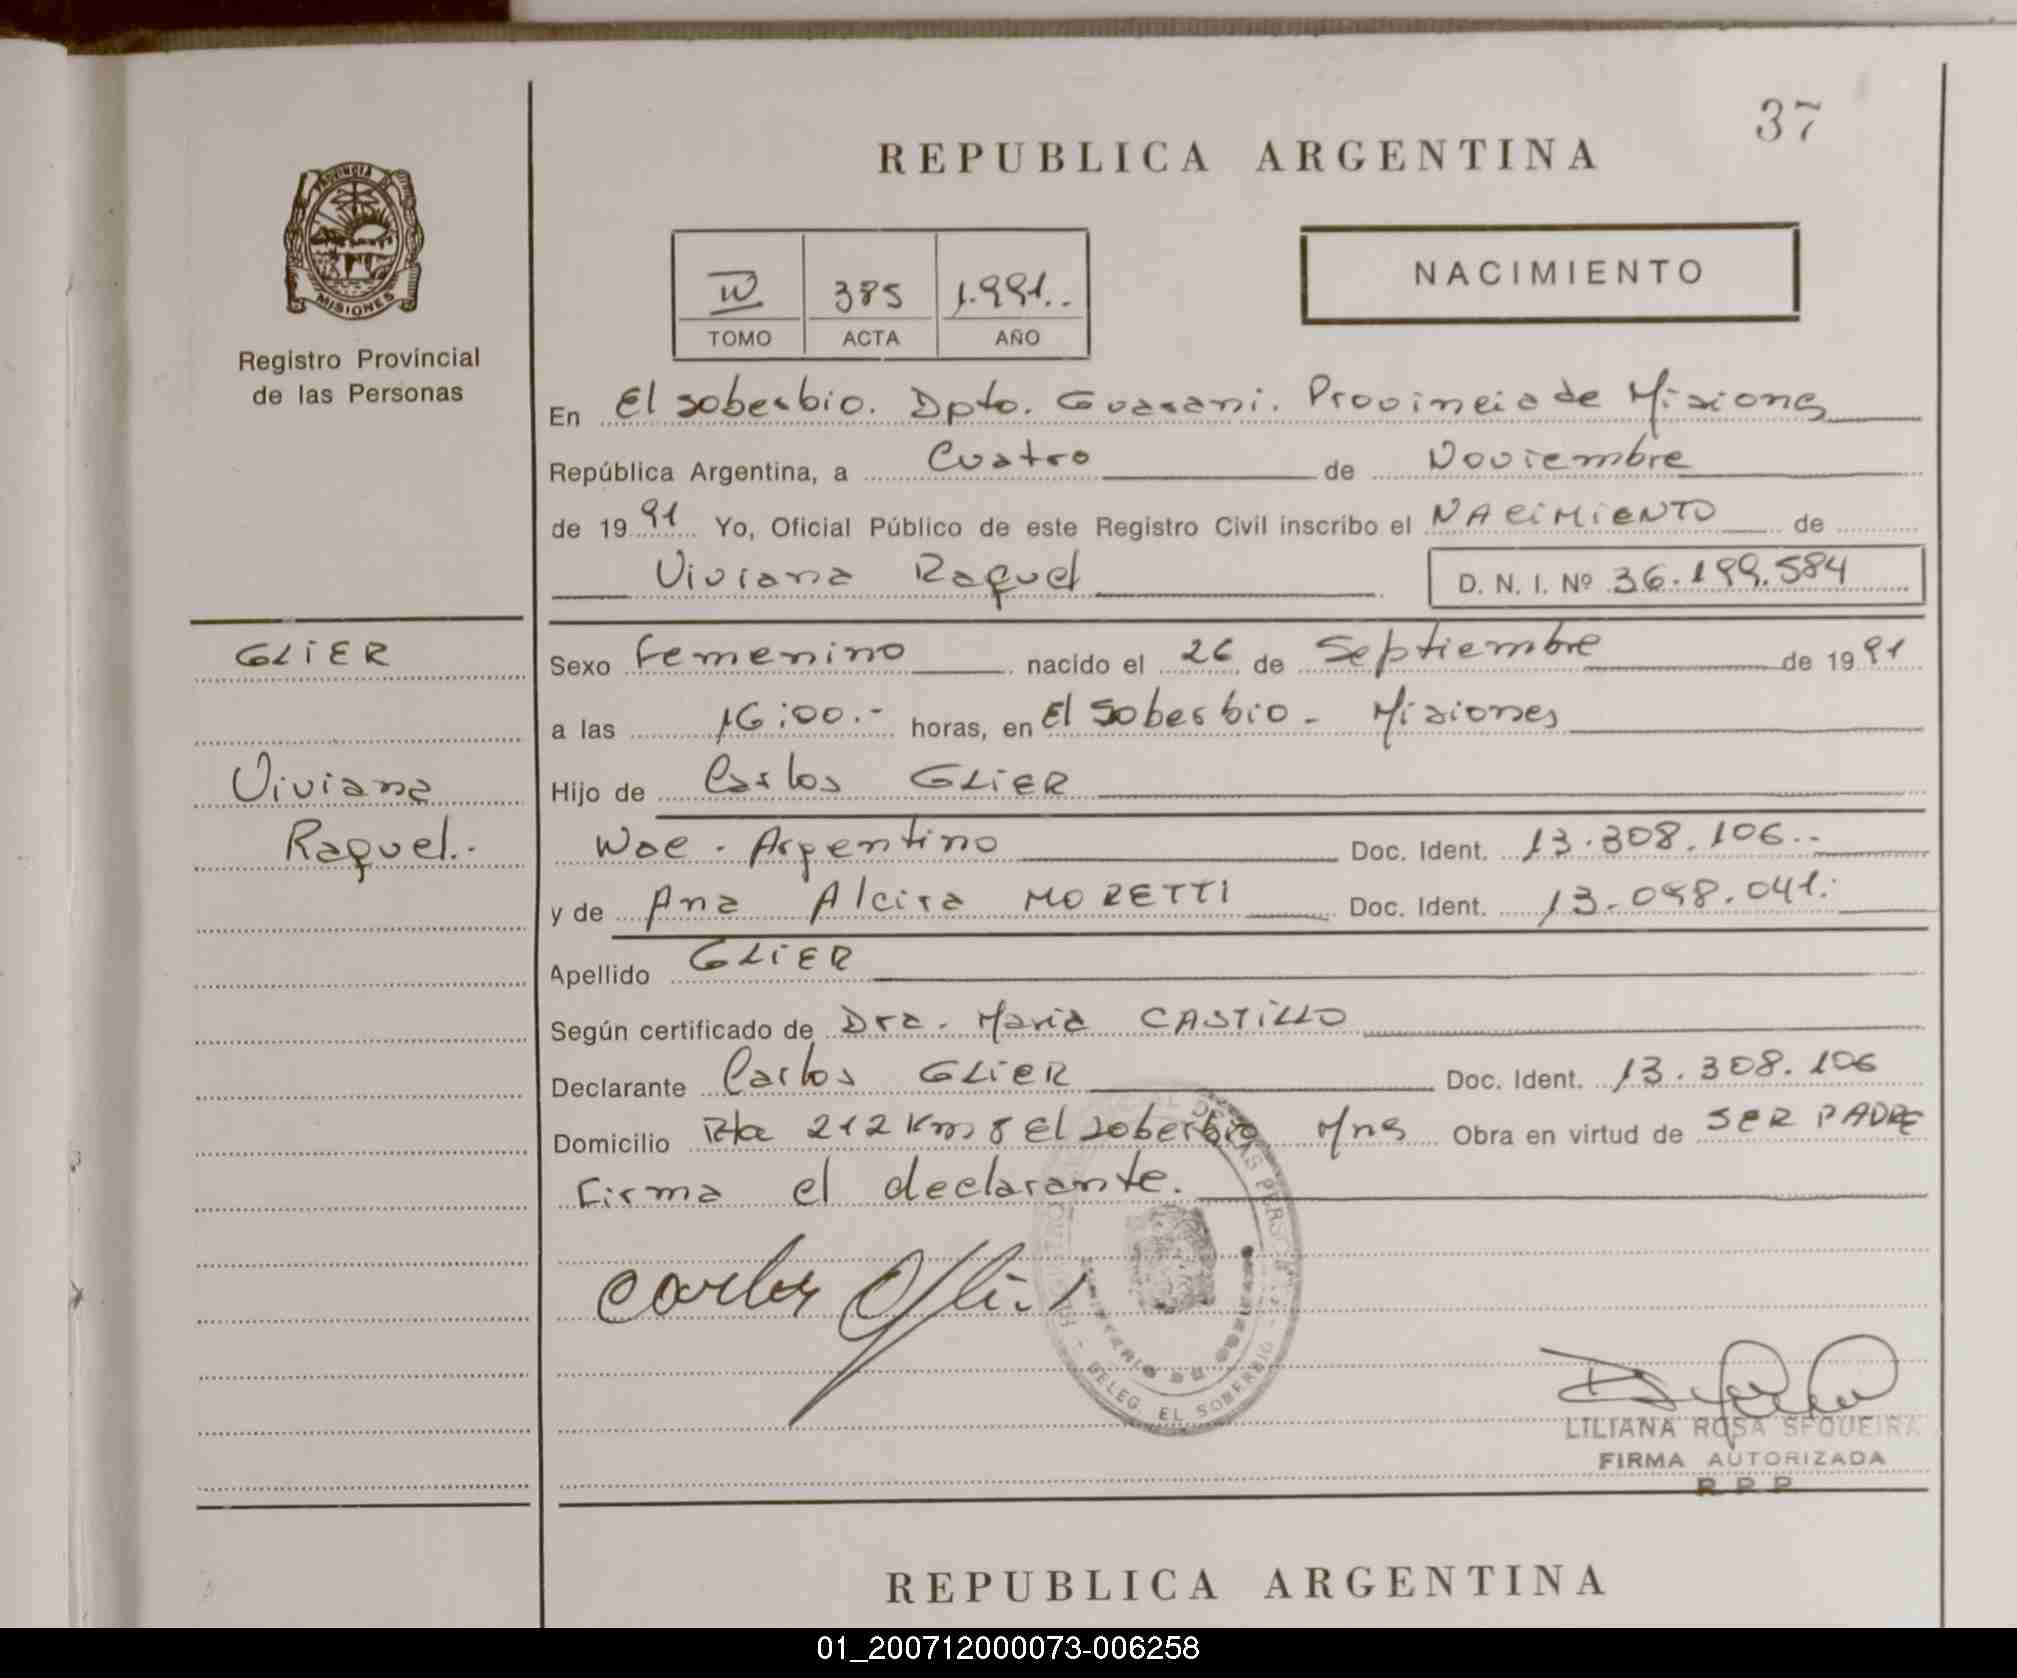 37
REPUBLICA ARGENTINA
PROVINCIA DE
MISIONES
Registro Provincial
de las Personas
IV 385 1.991..
TOMO ACTA AÑO
NACIMIENTO
En El Soberbio. Dpto. Guarani. Provincia de Misiones
República Argentina, a Cuatro de Noviembre
de 1991 Yo, Oficial Público de este Registro Civil inscribo el NACIMIENTO de
Viviana Raquel D. N. I. Nº 36.199.584
GLIER
Sexo Femenino nacido el 26 de Septiembre de 1991
a las 16:00.- horas, en El Soberbio - Misiones
Viviana
Hijo de Carlos GLIER
Raquel.-
Argentino Doc. Ident. 13.308.106.-
y de Ana Alcira MORETTI Doc. Ident. 13.098.041.-
Apellido GLIER
Según certificado de Dra. Maria CASTILLO
Declarante Carlos GLIER Doc. Ident. 13.308.106
Domicilio Rta 212 Km 8 El Soberbio Mns Obra en virtud de SER PADRE
Firma el declarante.
Carlos Glier
DELEG. EL SOBERBIO
LILIANA ROSA SEQUEIRA
FIRMA AUTORIZADA
R P P
REPUBLICA ARGENTINA
01_200712000073-006258